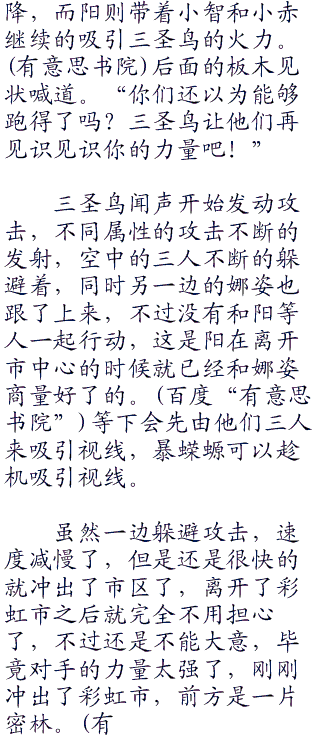 降，而阳则带着小智和小赤
继续的吸引三圣鸟的火力。
(有意思书院)后面的板木见
状喊道。“你们还以为能够
跑得了吗？三圣鸟让他们再
见识见识你的力量吧！”
三圣鸟闻声开始发动攻
击，不同属性的攻击不断的
发射，空中的三人不断的躲
避着，同时另一边的娜姿也
跟了上来，不过没有和阳等
人一起行动，这是阳在离开
市中心的时候就已经和娜姿
商量好了的。(百度“有意思
书院”)等下会先由他们三人
来吸引视线，暴蝾螈可以趁
机吸引视线。
虽然一边躲避攻击，速
度减慢了，但是还是很快的
就冲出了市区了，离开了彩
虹市之后就完全不用担心
了，不过还是不能大意，毕
竟对手的力量太强了，刚刚
冲出了彩虹市，前方是一片
密林。(有